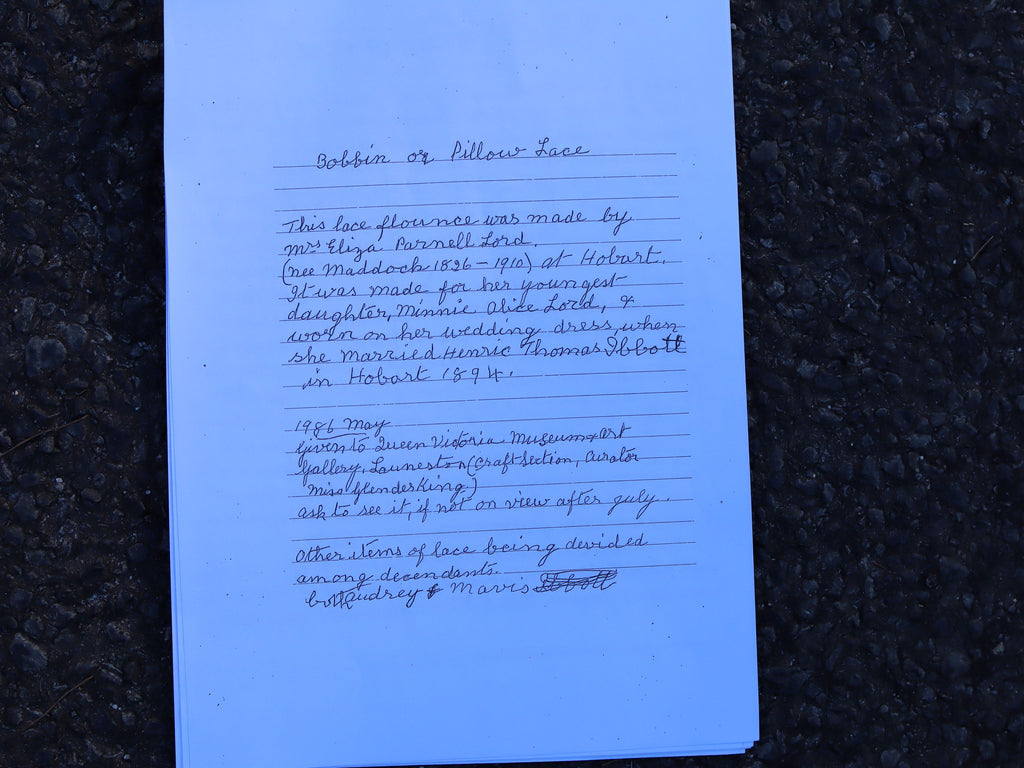 Bobbin or Pillow Lace
This lace flounce was made by
Mrs Eliza Parnell Lord.
(nee Maddock 1826 – 1910) at Hobart.
It was made for her youngest
daughter, Minnie Alice Lord, &
worn on her wedding dress, when
she married Henric Thomas Ibbott
in Hobart 1894.
1986 May
Given to Queen Victoria Museum & Art
Gallery, Launeston (Craft Section, Curator
Miss Glenda King)
ask to see it, if not on view after july.
Other items of lace being devided
among decendants.
Audrey & Mavis